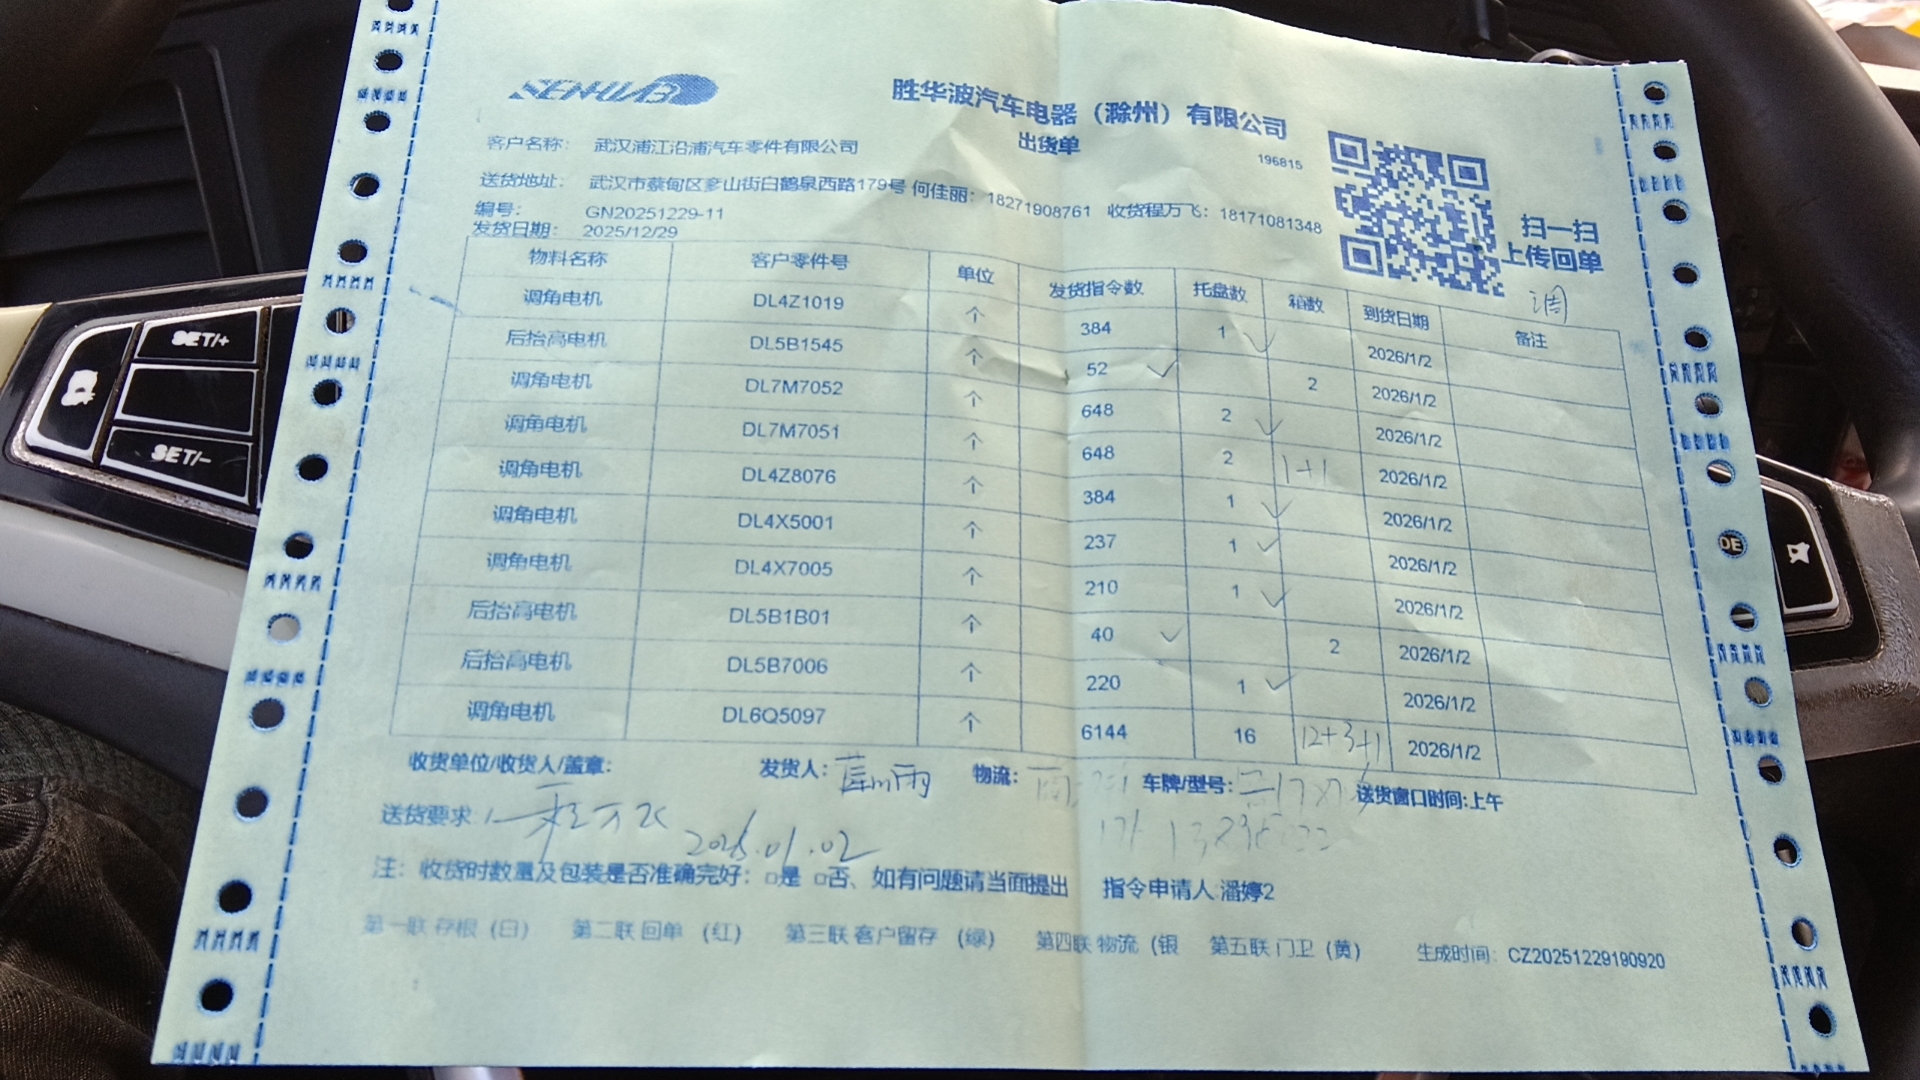 SENHUAB
胜华波汽车电器（滁州）有限公司
出货单
196815
客户名称： 武汉浦江沿浦汽车零件有限公司
送货地址： 武汉市蔡甸区奓山街白鹤泉西路179号 何佳丽：18271908761 收货程万飞：18171081348
编号： GN20251229-11
发货日期： 2025/12/29
扫一扫
上传回单
调
物料名称 客户零件号 单位 发货指令数 托盘数 箱数 到货日期 备注
调角电机 DL4Z1019 个 384 1 ✓ 2026/1/2
后抬高电机 DL5B1545 个 52 ✓ 2 2026/1/2
调角电机 DL7M7052 个 648 2 ✓ 2026/1/2
调角电机 DL7M7051 个 648 2 1+1 2026/1/2
调角电机 DL4Z8076 个 384 1 ✓ 2026/1/2
调角电机 DL4X5001 个 237 1 ✓ 2026/1/2
调角电机 DL4X7005 个 210 1 ✓ 2026/1/2
后抬高电机 DL5B1B01 个 40 ✓ 2 2026/1/2
后抬高电机 DL5B7006 个 220 1 ✓ 2026/1/2
调角电机 DL6Q5097 个 6144 16 12+3+1 2026/1/2
收货单位/收货人/盖章： 发货人： 物流： 车牌/型号： 送货窗口时间:上午
送货要求： 程万飞 2026.01.02
注： 收货时数量及包装是否准确完好：□是 □否、如有问题请当面提出 指令申请人:潘婷2
第一联 存根（白） 第二联 回单 （红） 第三联 客户留存 （绿） 第四联 物流（银 第五联 门卫（黄） 生成时间：CZ20251229190920
SET/+
SET/-
DE